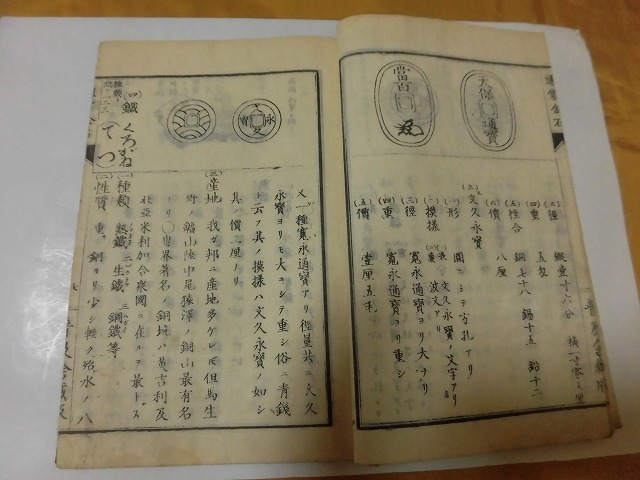 當百
天保通寶
(三)徑 縱壹寸六分 橫一寸零五厘
(四)重 五匁
(五)性合 銅七十八 錫十五 鉛十二
(六)價 八厘
文久永寶
(一)形 圓ニシテ方孔アリ
(二)模樣 表ハ文久永寶ノ文字アリ
裏ハ波文アリ
(三)徑 寬永通寶ヨリ大ナリ
(四)重 寬永通寶ヨリ重シ
(五)價 壹厘五毛
文久永寶
又一種寬永通寶アリ徑量共ニ文久
永寶ヨリモ大ニシテ重シ俗ニ青錢
ト云フ其ノ模樣ハ文久永寶ノ如シ
其ノ價二厘ナリ
(三)產地 我ガ邦ニ產地多ケレ𪜈但馬生
野ノ鑛山陸中尾猿澤ノ銅山最有名
ナリ〇世界著名ノ銅坑ハ英吉利及
北亞米利加合衆國ニ在ルヲ最トス
(四)鐵 くろがね
(てつ
種類
(一)種類 熟鐵 生鐵 鋼鐵等
(二)性質 重サ銅ヨリ少シ輕ク殆水ノ八